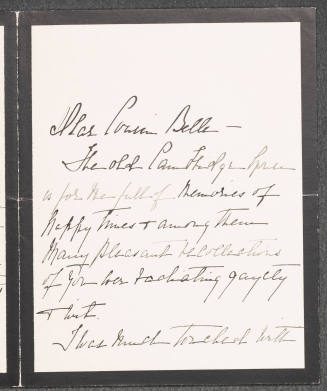 Dear Cousin Belle —
The old Cambridge house
is for me full of memories of
happy times & among them
many pleasant recollections
of you, ever radiating gayety
& wit.
I was much touched with